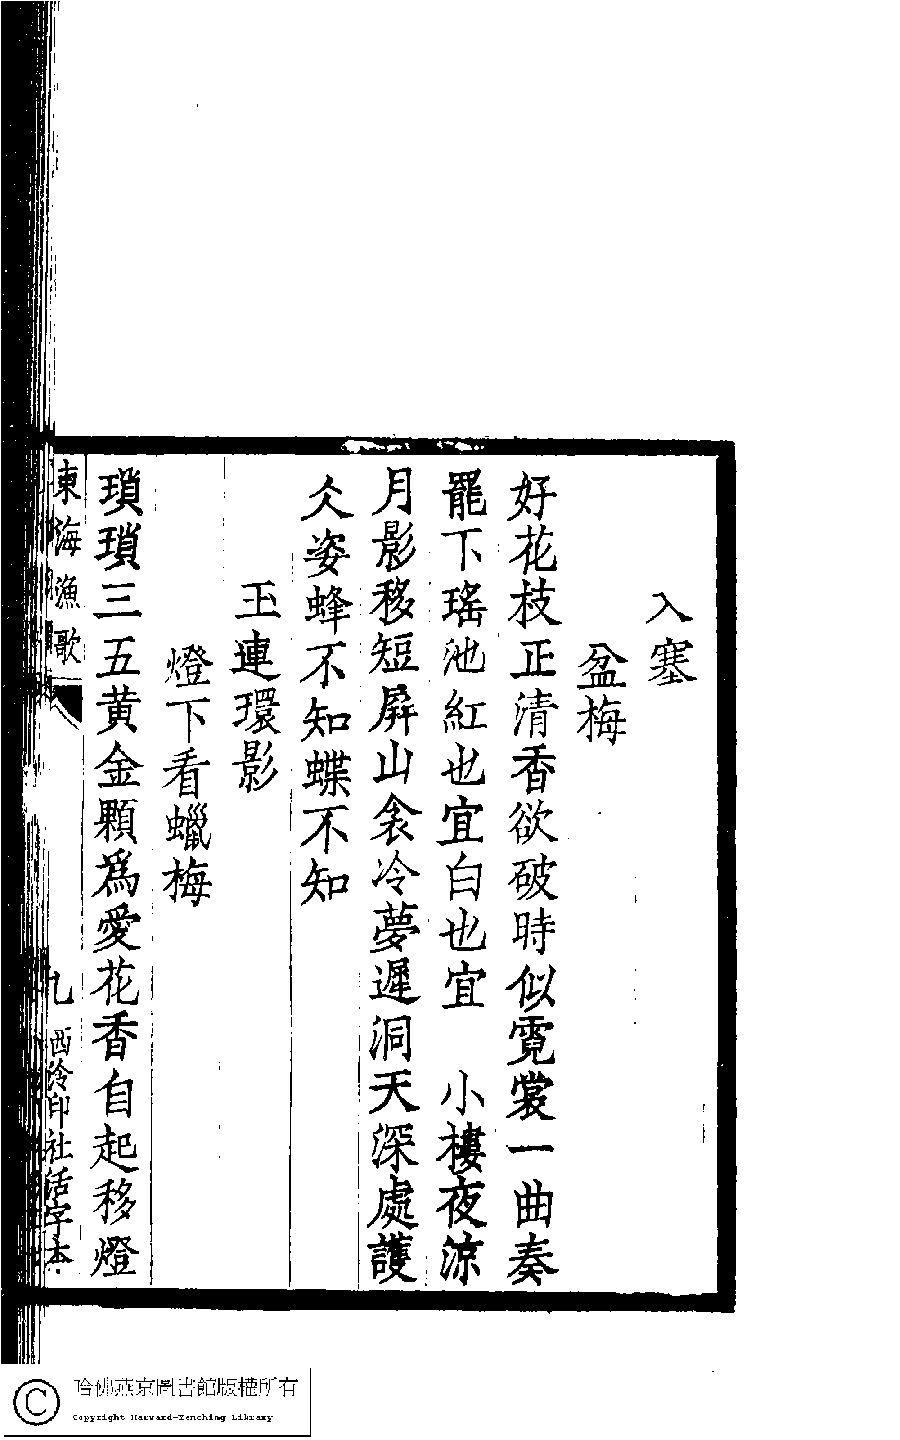 入塞
盆梅
好花枝正清香欲破時似霓裳一曲奏
罷下瑤池紅也宜白也宜　小樓夜涼
月影移短屏山衾冷夢遲洞天深處護
仌姿蜂不知蝶不知
玉連環影
燈下看蠟梅
瑣瑣三五黄金顆爲愛花香自起移燈
東海漁歌
九
西泠印社活字本
哈佛燕京圖書館版權所有
Copyright Harvard-Yenching Library